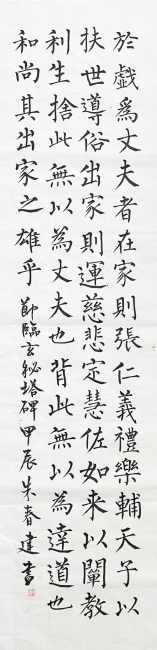 於戲為丈夫者在家則張仁義禮樂輔天子以
扶世導俗出家則運慈悲定慧佐如来以闡教
利生捨此無以為丈夫也背此無以為達道也
和尚其出家之雄乎 節臨玄秘塔碑甲辰朱春建書